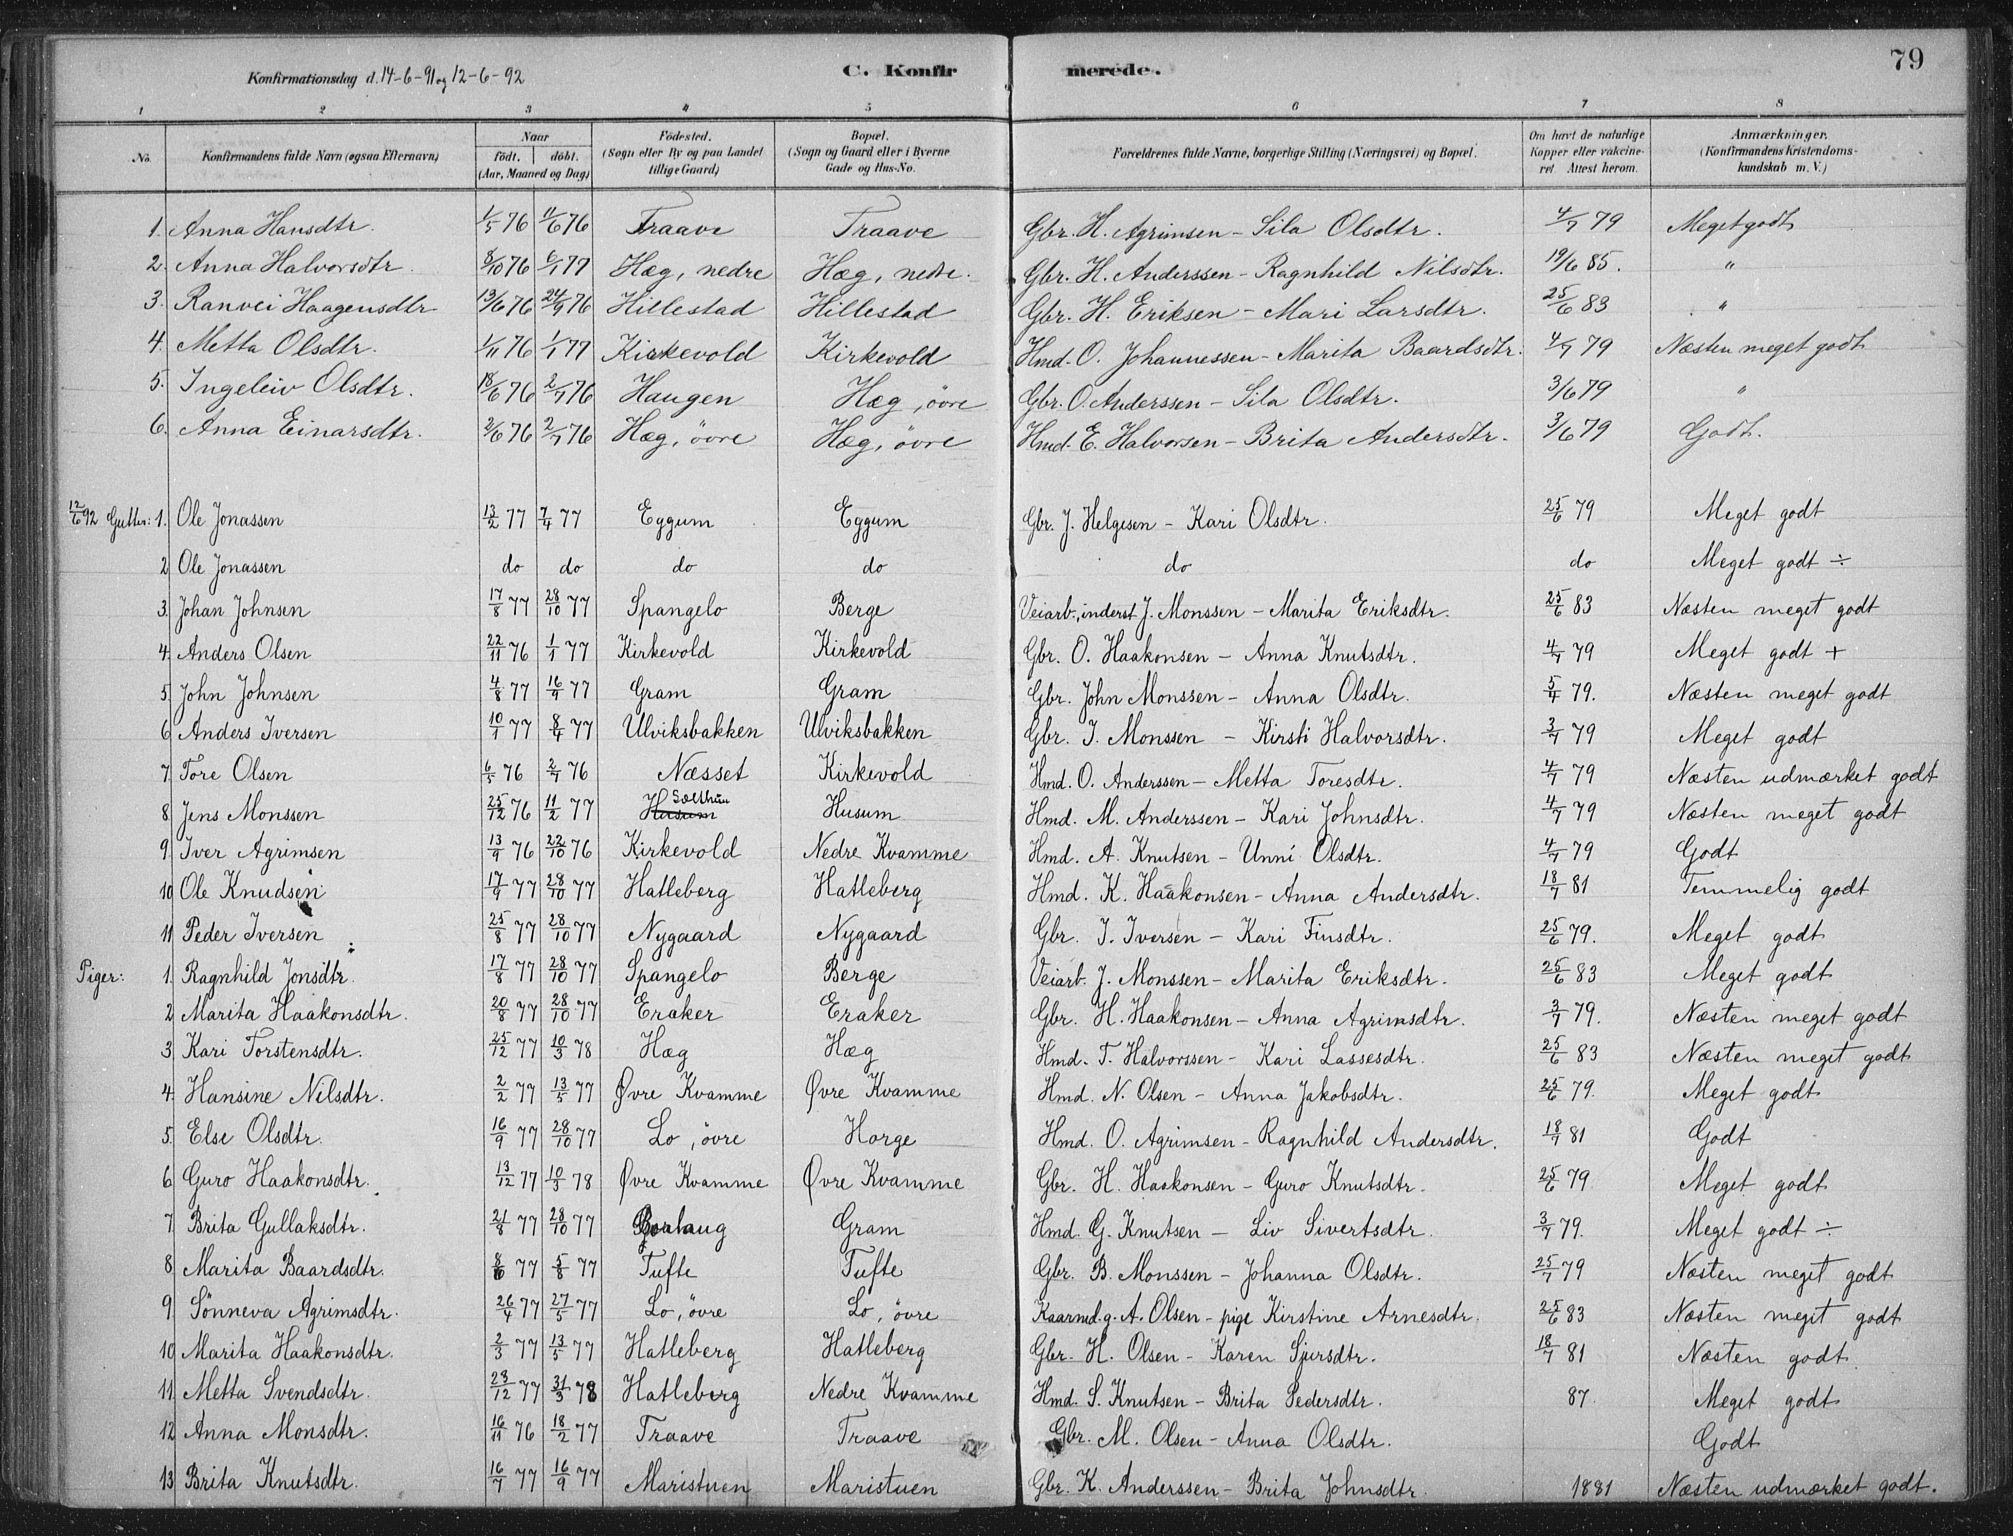 Konfirmationsdag d. 14-6-91 og 12-6-92 C. Konfirmerede. 79
1 2 3 4 5 6 7 8
No. Konfirmandens fulde Navn (ogsaa Efternavn) Naar födt. döbt. (Aar, Maaned og Dag) Födested. (Sogn eller By og paa Landet tillige Gaard) Bopæl. (Sogn og Gaard eller i Byerne Gade og Hus-No. Forældrenes fulde Navne, borgerlige Stilling (Næringsvei) og Bopæl. Om havt de naturlige Kopper eller vakcineret. Attest herom. Anmærkninger. (Konfirmandens Kristendomskundskab m. V.)
1. Anna Hansdtr. 1/5 76 11/6 76 Traave Traave Gbr. H. Agrimsen - Sila Olsdtr. 4/7 79 Meget godt
2. Anna Halvorsdtr. 8/10 76 6/1 77 Hæg, nedre Hæg, nedre. Gbr. H. Anderssen - Ragnhild Nilsdtr. 19/6 85. "
3. Ranvei Haagensdtr 13/6 76 24/9 76 Hillestad Hillestad Gbr. H. Eriksen - Mari Larsdtr. 25/6 83 "
4. Metta Olsdtr. 1/11 76 1/1 77 Kirkevold Kirkevold Hmd. O. Johannessen - Marita Baardsdtr. 4/7 79 Næsten meget godt
5. Ingeleiv Olsdtr. 18/6 76 2/7 76 Haugen Hæg, övre Gbr. O. Anderssen - Sila Olsdtr. 3/6 79 "
6. Anna Einarsdtr. 2/6 76 2/7 76 Hæg, övre Hæg, övre Hmd. E. Halvorsen - Brita Andersdtr. 3/6 79 Godt.
12/6 92 Gutter: 1. Ole Jonassen 13/2 77 7/4 77 Eggum Eggum Gbr. J. Helgesen - Kari Olsdtr. 25/6 79 Meget godt
2 Ole Jonassen do do do do do do Meget godt ÷
3. Johan Johnsen 17/8 77 28/10 77 Spangelo Berge Veiarb., inderst J. Monssen - Marita Eriksdtr. 25/6 83 Næsten meget godt
4. Anders Olsen 22/11 76 1/1 77 Kirkevold Kirkevold Gbr. O. Haakonsen - Anna Knutsdtr. 4/7 79 Meget godt +
5. John Johnsen 4/8 77 16/9 77 Gram Gram Gbr. John Monssen - Anna Olsdtr. 5/4 79. Næsten meget godt
6 Anders Iversen 10/1 77 8/4 77 Ulviksbakken Ulviksbakken Gbr. I. Monssen - Kirsti Halvorsdtr. 3/7 79 Meget godt
7. Tore Olsen 6/5 76 2/7 76 Næsset Kirkevold Hmd. O. Anderssen - Metta Toresdtr. 4/7 79 Næsten udmærket godt
8 Jens Monssen 25/12 76 11/2 77 Husum Sælthun Husum Hmd. M. Anderssen - Kari Johnsdtr. 4/7 79 Næsten meget godt
9. Iver Agrimsen 13/9 76 22/10 76 Kirkevold Nedre Kvamme Hmd. A. Knutsen - Unni Olsdtr. 4/7 79 Godt
10 Ole Knudsen 17/9 77 28/10 77 Hatleberg Hatleberg Hmd. K. Haakonsen - Anna Andersdtr. 18/7 81 Temmelig godt
11 Peder Iversen 25/8 77 28/10 77 Nygaard Nygaard Gbr. I. Iversen - Kari Finsdtr. 25/6 79. Meget godt
Piger: 1. Ragnhild Jonsdtr. 17/8 77 28/10 77 Spangelo Berge Veiarb. J. Monssen - Marita Eriksdtr. 25/6 83 Meget godt
2 Marita Haakonsdtr. 20/8 77 28/10 77 Eraker Eraker Gbr. H. Haakonsen - Anna Agrimsdtr. 3/7 79. Næsten meget godt
3 Kari Torstensdtr. 25/12 77 10/3 78 Hæg Hæg Hmd. T. Halvorssen - Kari Lassesdtr. 25/6 83 Næsten meget godt
4. Hansine Nilsdtr. 2/2 77 13/5 77 Øvre Kvamme Øvre Kvamme Hmd. N. Olsen - Anna Jakobsdtr. 25/6 79. Meget godt
5. Else Olsdtr. 16/9 77 28/10 77 Lo, övre Horge Hmd. O. Agrimsen - Ragnhild Andersdtr. 18/7 81 Godt
6 Guro Haakonsdtr. 13/12 77 10/3 78 Øvre Kvamme Øvre Kvamme Gbr. H. Haakonsen - Guro Knutsdtr. 25/6 79 Meget godt
7 Brita Gullaksdtr. 21/8 77 28/10 77 Gram Hmd. G. Knutsen - Liv Sivertsdtr. 3/7 79. Meget godt ÷
8. Marita Baardsdtr. 8/6 77 5/8 77 Tufte Tufte Gbr. B. Monssen - Johanna Olsdtr. 25/7 79 Næsten meget godt
9. Sönneva Agrimsdtr. 26/4 77 27/5 77 Lo, övre Lo, övre Kaarmd. g. A. Olsen - pige Kirstine Arnesdtr. 25/6 83 Næsten meget godt
10 Marita Haakonsdtr. 2/3 77 13/5 77 Hatleberg Hatleberg Gbr. H. Olsen - Karen Sjursdtr. 18/7 81 Næsten godt.
11. Metta Svendsdtr. 23/12 77 31/3 78 Hatleberg Nedre Kvamme Hmd. S. Knutsen - Brita Pedersdtr. 87. Meget godt
12 Anna Monsdtr. 16/11 76 18/2 77 Traave Traave Gbr. M. Olsen - Anna Olsdtr. Godt
13 Brita Knutsdtr. 16/7 77 16/9 77 Maristuen Maristuen Gbr. K. Anderssen - Brita Johnsdtr. 1881 Næsten udmærket godt.